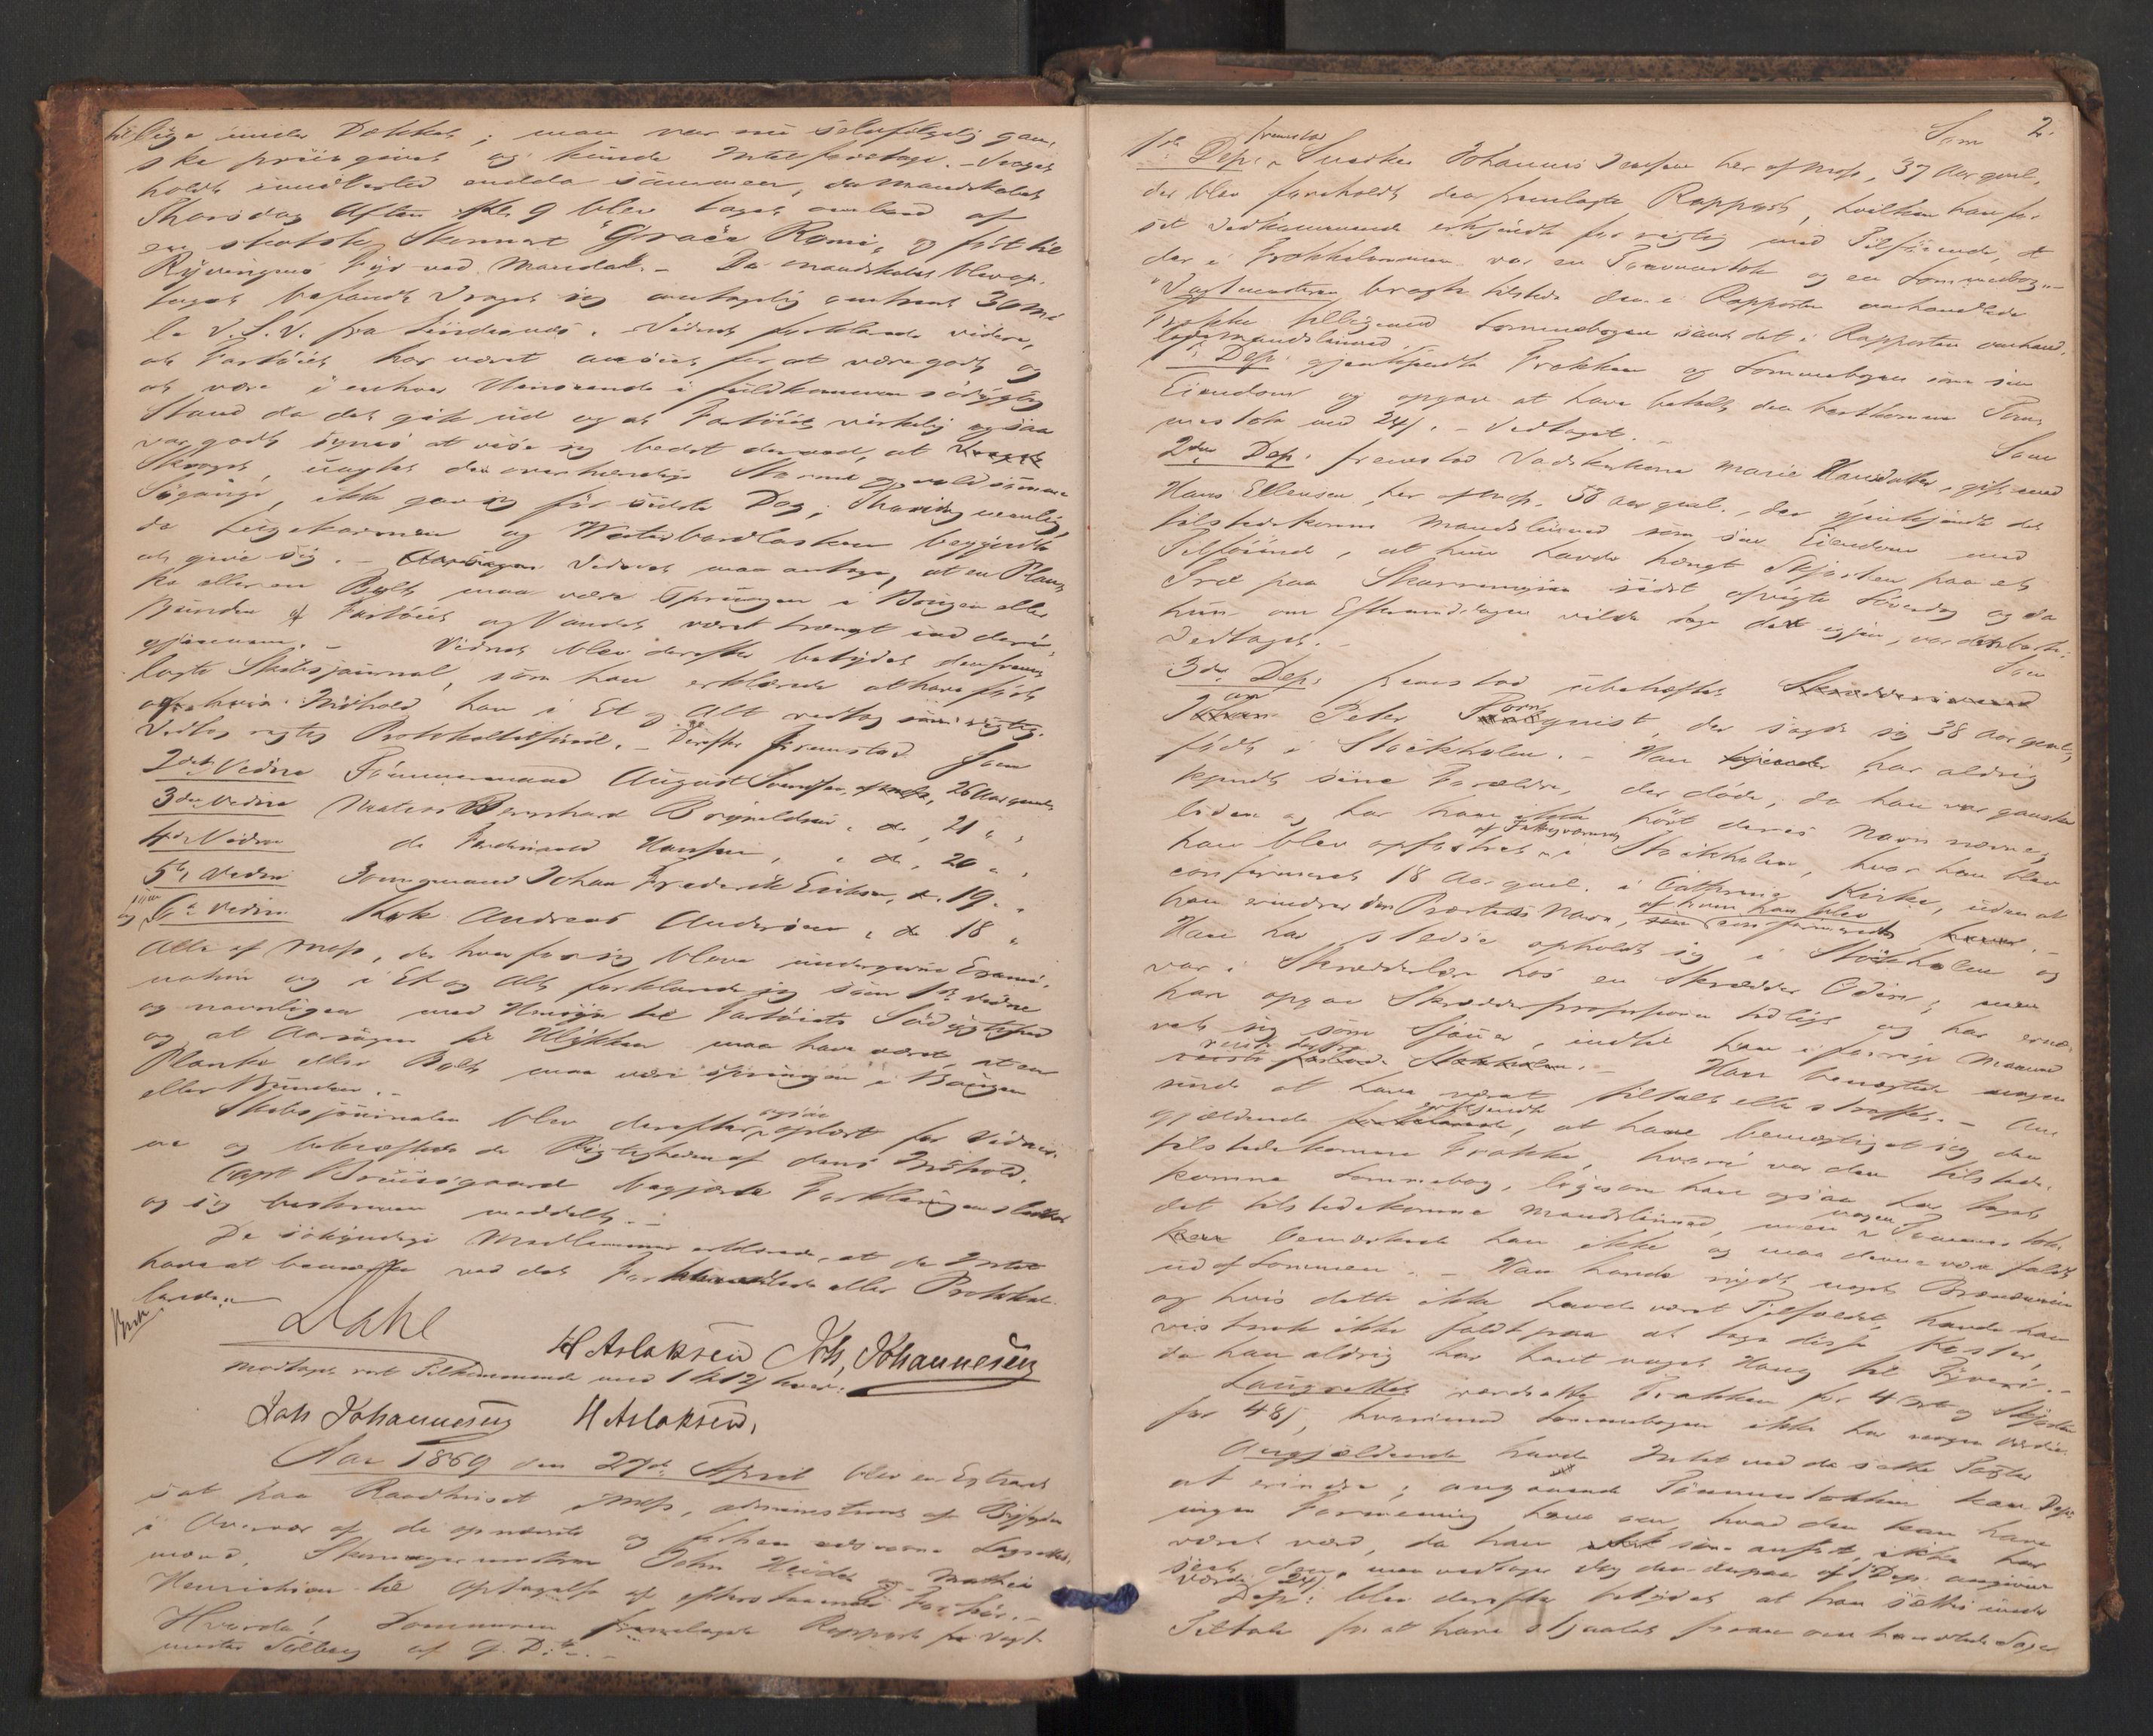 til lige under Dækket; man var nu selvfølgelig gan-
ske priisgivet og kunde Intet foretage. - Vraget
holdt imidlertid endda sammen, da Mandskabet
Thorsdag Aften Kl. 9 blev taget ombord af
en skotsk Skonnert "Grace Romi" og ført til
Ryvingens Fyr ved Mandal. - Da Mandskabet blev op-
taget befandt Vraget sig antagelig omtrent 30 Mi-
le V.S.V. fra Lindesnæs. Vidnet forklarede videre,
at Fartøiet har været anseet for at være godt og
at være i enhver Henseende i fuldkommen sødygtig
Stand da det gik ud og at Fartøiet virkelig ogsaa
var godt synes at vise sig bedst derved, at Vraget
Skroget, uagtet den overhændige Storm og voldsomme
Søgang, ikke gav sig før sidste Dag, Thorsdag nemlig,
da Lugekarmen og Waterbordlasken begyndte
at give sig. - Aarsagen Vidnet maa antage, at en Plan-
ke eller en Bolt maa være sprungen i Bougen eller
Bunden af Fartøiet og Vandet været trængt ind deri-
gjennem. - Vidnet blev derefter betydet den frem-
lagte Skibsjournal, som han erklærede at have ført
og hvis Indhold han i Et og Alt vedtog som rigtig.
Vedtog rigtig Protokoltilførsel. - Derefter fremstod Som
2det Vidne Tømmermand August Svendsen, af Moss, 26 Aar gammel,
3die Vidne Matros Bernhard Brynildsen, do, 21 " "
4de Vidne do Ferdinand Hansen, " do, 20 " "
5te Vidne Jungmand Johan Frederik Eriksen, do. 19 " "
og som 6te Vidne Kok Andreas Andersen, do 18 "
Alle af Moss, der hver for sig bleve undergivne Exami-
nation og i Et og Alt forklarede sig som 1ste Vidne
og navnligen med Hensyn til Fartøiets Sødygtighed
og at Aarsagen til Ulykken maa have været, at en
Planke eller Bolt maa være sprungen i Bougen
eller Bunden. -
Skibsjournalen blev derefter ogsaa oplæst for Vidner-
ne og bekræftede de Rigtigheden af dens Indhold.
Capt Bruusgaard begjærte Forklaringen sluttet
og sig beskreven meddelt. -
De søkyndige Medlemmer erklærede, at de Intet
havde at bemærke ved det Forhandlede eller Protokol-
lerede. -
Dahl
H Aslaksen Joh, Johannesen
Modtaget vort Tilkommende med 1 # 12 s hver:
Joh Johannesen H Aslaksen,
Aar 1869 den 27de April blev en Extraret
sat paa Raadhuset i Moss, administreret af Byfogden
i Overvær af de opnævnte og forhen edsvorne Lagrettes-
mænd, Skomagermester John Heidel og Mathis
Henrichsen til Optagelse af efterstaaende Forhør. -
Hvorda! Dommeren fremlagde Rapport fra Vagt-
mester Solberg af G. D: -
2.
Som
1ste Dep: fremstod Snedker Johannes Jensen her af Moss, 37 Aar gml,
der blev foreholdt den fremlagte Rapport, hvilken han for
sit Vedkommende erkjendte for rigtig med Tilføiende, at
der i Frakkelommen var en Tommestok og en Lommebog. -
Vagtmesteren bragte tilstede den i Rapporten omhandlede
Frakke tilligemed Lommebogen samt det i Rapporten omhand-
lede Mandslinned.
1ste Dep: gjenkjendte Frakken og Lommebogen som sin
Eiendom og opgav at have betalt den bortkomne Tom-
mestok med 24 s. - Vedtaget. -
Som
2den Dep: fremstod Vadskerkone Marie Hansdatter, gift med
Hans Ellensen, her af Moss, 58 Aar gml., der gjenkjendte det
tilstedekomne Mandslinned som sin Eiendom med
Tilføiende, at hun havde hængt Skjorten paa et
Træ paa Skarremyren sidst afvigte Løverdag og da
hun om Eftermiddagen vilde tage det igjen, var det borte.
Vedtaget. -
Som
3die Dep: fremstod ubehæftet
Peter quist, der sagde sig 38 Aar gml,
født i Stockholm. - Han har aldrig
kjendt sine Forældre, der døde, da han var ganske
liden og har han ikke hørt deres Navn nævne,
han blev opfostret af Fattigvæsenet i Stockholm, hvor han blev
confirmeret 18 Aar gml. i Cathrina Kirke, uden at
han erindrer den Præstens Navn, af hvem han blev confirmeret.
Han har stedse opholdt sig i Stockholm og
var i Skrædderlære hos en Skrædder Odin, men
han opgav Skrædderprofessionen tidligt og har ernæ-
ret sig som Sjouer, indtil han i forrige Maaned
reiste derfra. - Han benægtede nogen-
sinde at have været tiltalt eller straffet. - An-
gjældende erkjendte, at have bemægtiget sig den
tilstedekomne Frakke, hvori var den tilstede-
komne Lommebog, ligesom han ogsaa har taget
det tilstedekomne Mandslinned, men nogen Tommestok
bemærkede han ikke og maa denne være faldt
ud af Lommen. - Han havde nydt noget Brændeviin
og hvis dette ikke havde været Tilfældet, havde han
vistnok ikke faldt paa at tage disse Koster,
da han aldrig har havt noget Hang til Tyveri. -
Laugrettet værdsatte Frakken for 4 Ort og Skjorten
for 48 s, hvorimod Lommebogen ikke har nogen Værdi.
Angjældende havde Intet ved de satte Taxter
at erindre; angaaende Tommestokken kan Dep:
ingen Formening have om, hvad den kan have
været værd, da han som anført, ikke har
seet den, men vedtager dog den derpaa af 1ste Dep: angivne
Værdi 24 s.
Dep: blev derefter betydet at han sættes under
Tiltale for at have stjaalet foran omhandlede Sager